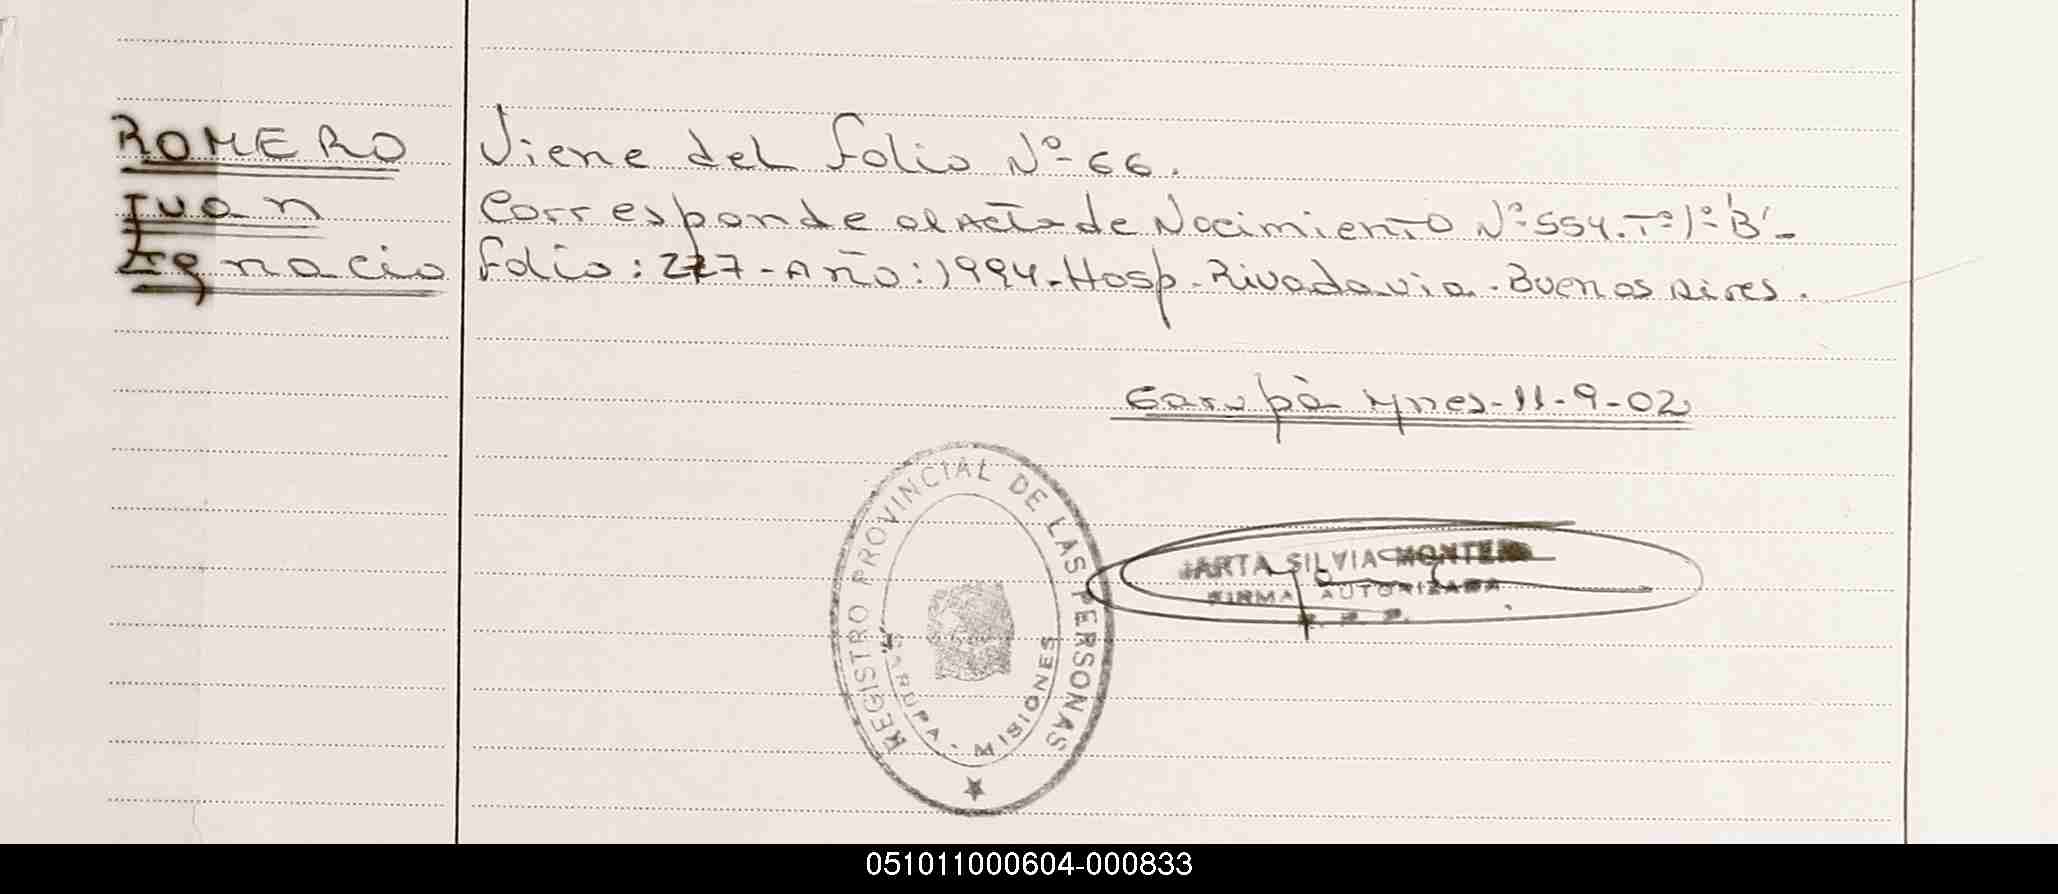 ROMERO Viene del folio Nº 66.
Juan Corresponde al Acta de Nacimiento Nº 554. Tº 1º "B"-
Ignacio folio: 277 - Año: 1994 - Hosp. Rivadavia - Buenos Aires.
Garupà Mnes - 11-9-02
REGISTRO PROVINCIAL DE LAS PERSONAS
GARUPA - MISIONES
ARTA SILVIA
FIRMA AUTORIZADA
051011000604-000833